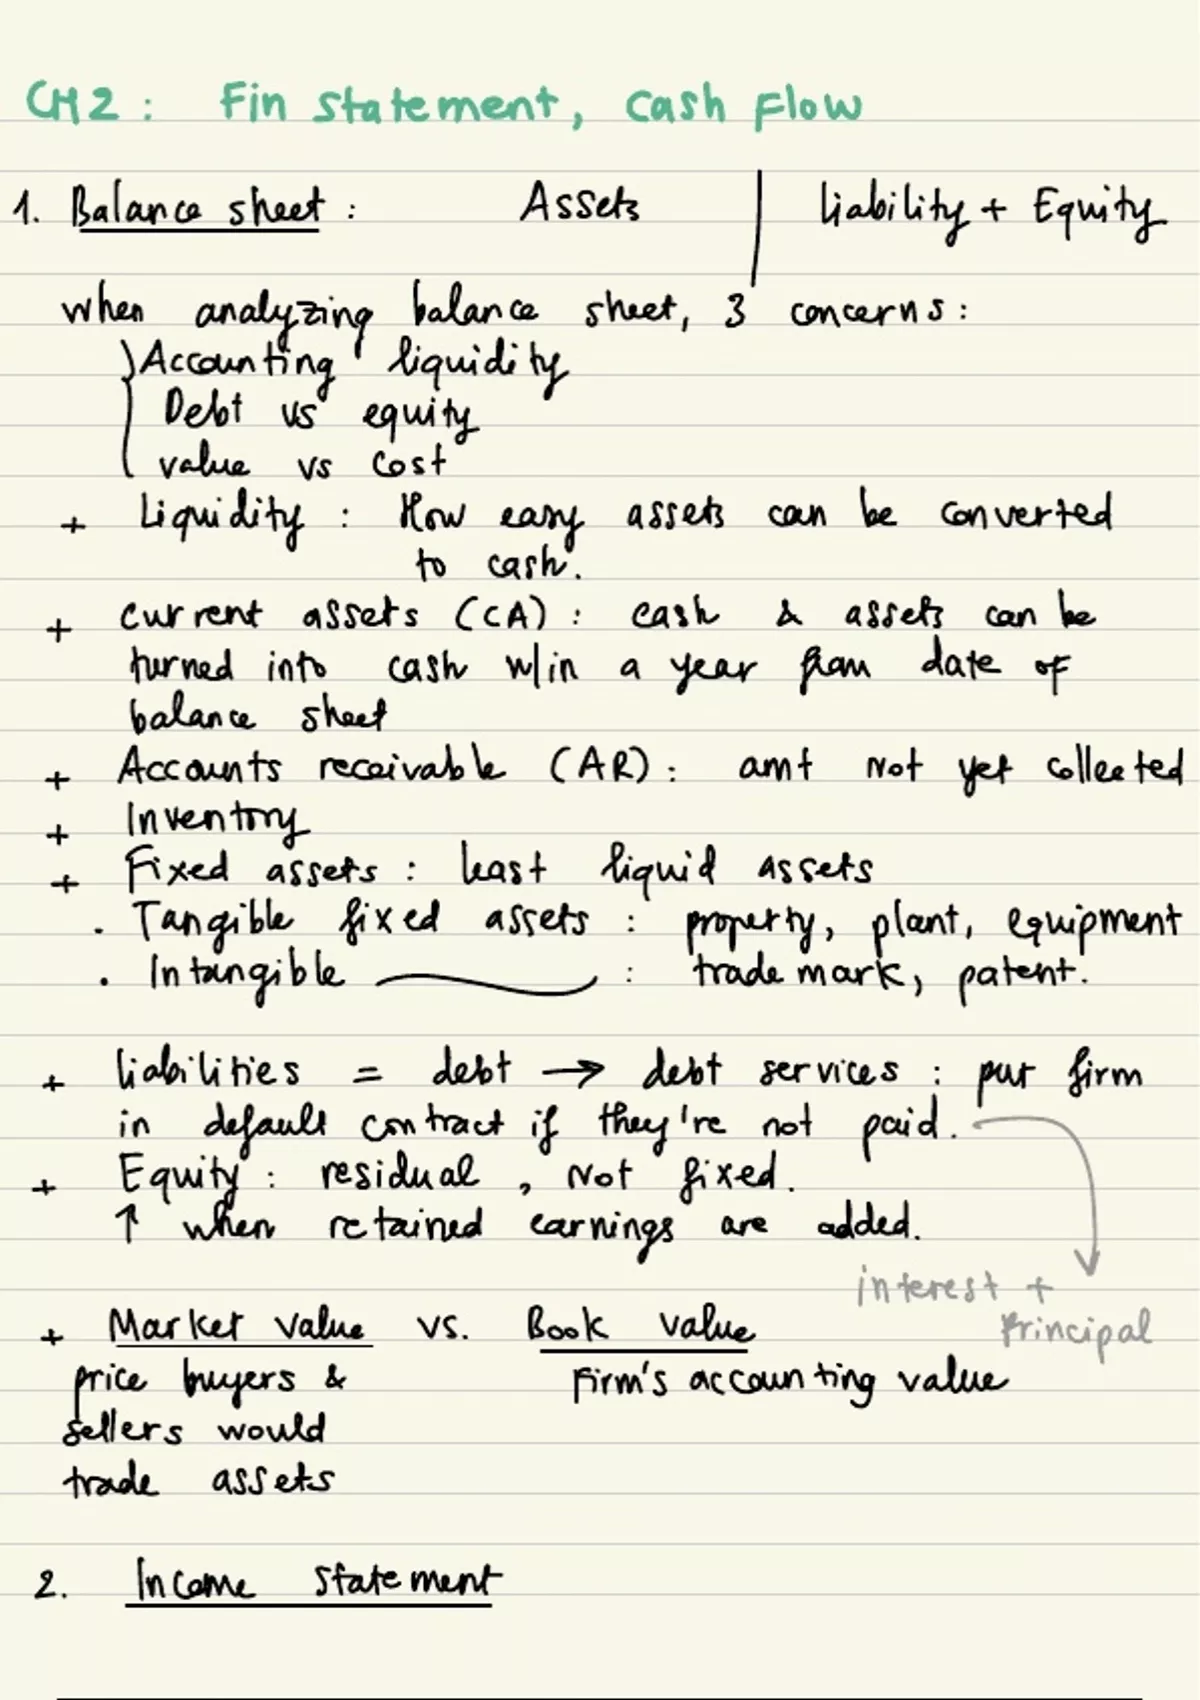 CH2: Fin statement, cash flow
1. Balance sheet: Assets | liability + Equity
when analyzing balance sheet, 3 concerns:
Accounting liquidity
Debt vs equity
value vs cost
+ Liquidity: How easy assets can be converted
to cash.
+ current assets (CA): cash & assets can be
turned into cash w/in a year from date of
balance sheet
+ Accounts receivable (AR): amt not yet collected
+ Inventory
+ Fixed assets: least liquid assets
. Tangible fixed assets: property, plant, equipment
. Intangible : trademark, patent.
+ liabilities = debt → debt services: put firm
in default contract if they're not paid.
+ Equity: residual, not fixed.
↑ when retained earnings are added.
interest +
Principal
+ Market value vs. Book value
price buyers & Firm's accounting value
sellers would
trade assets
2. Income statement